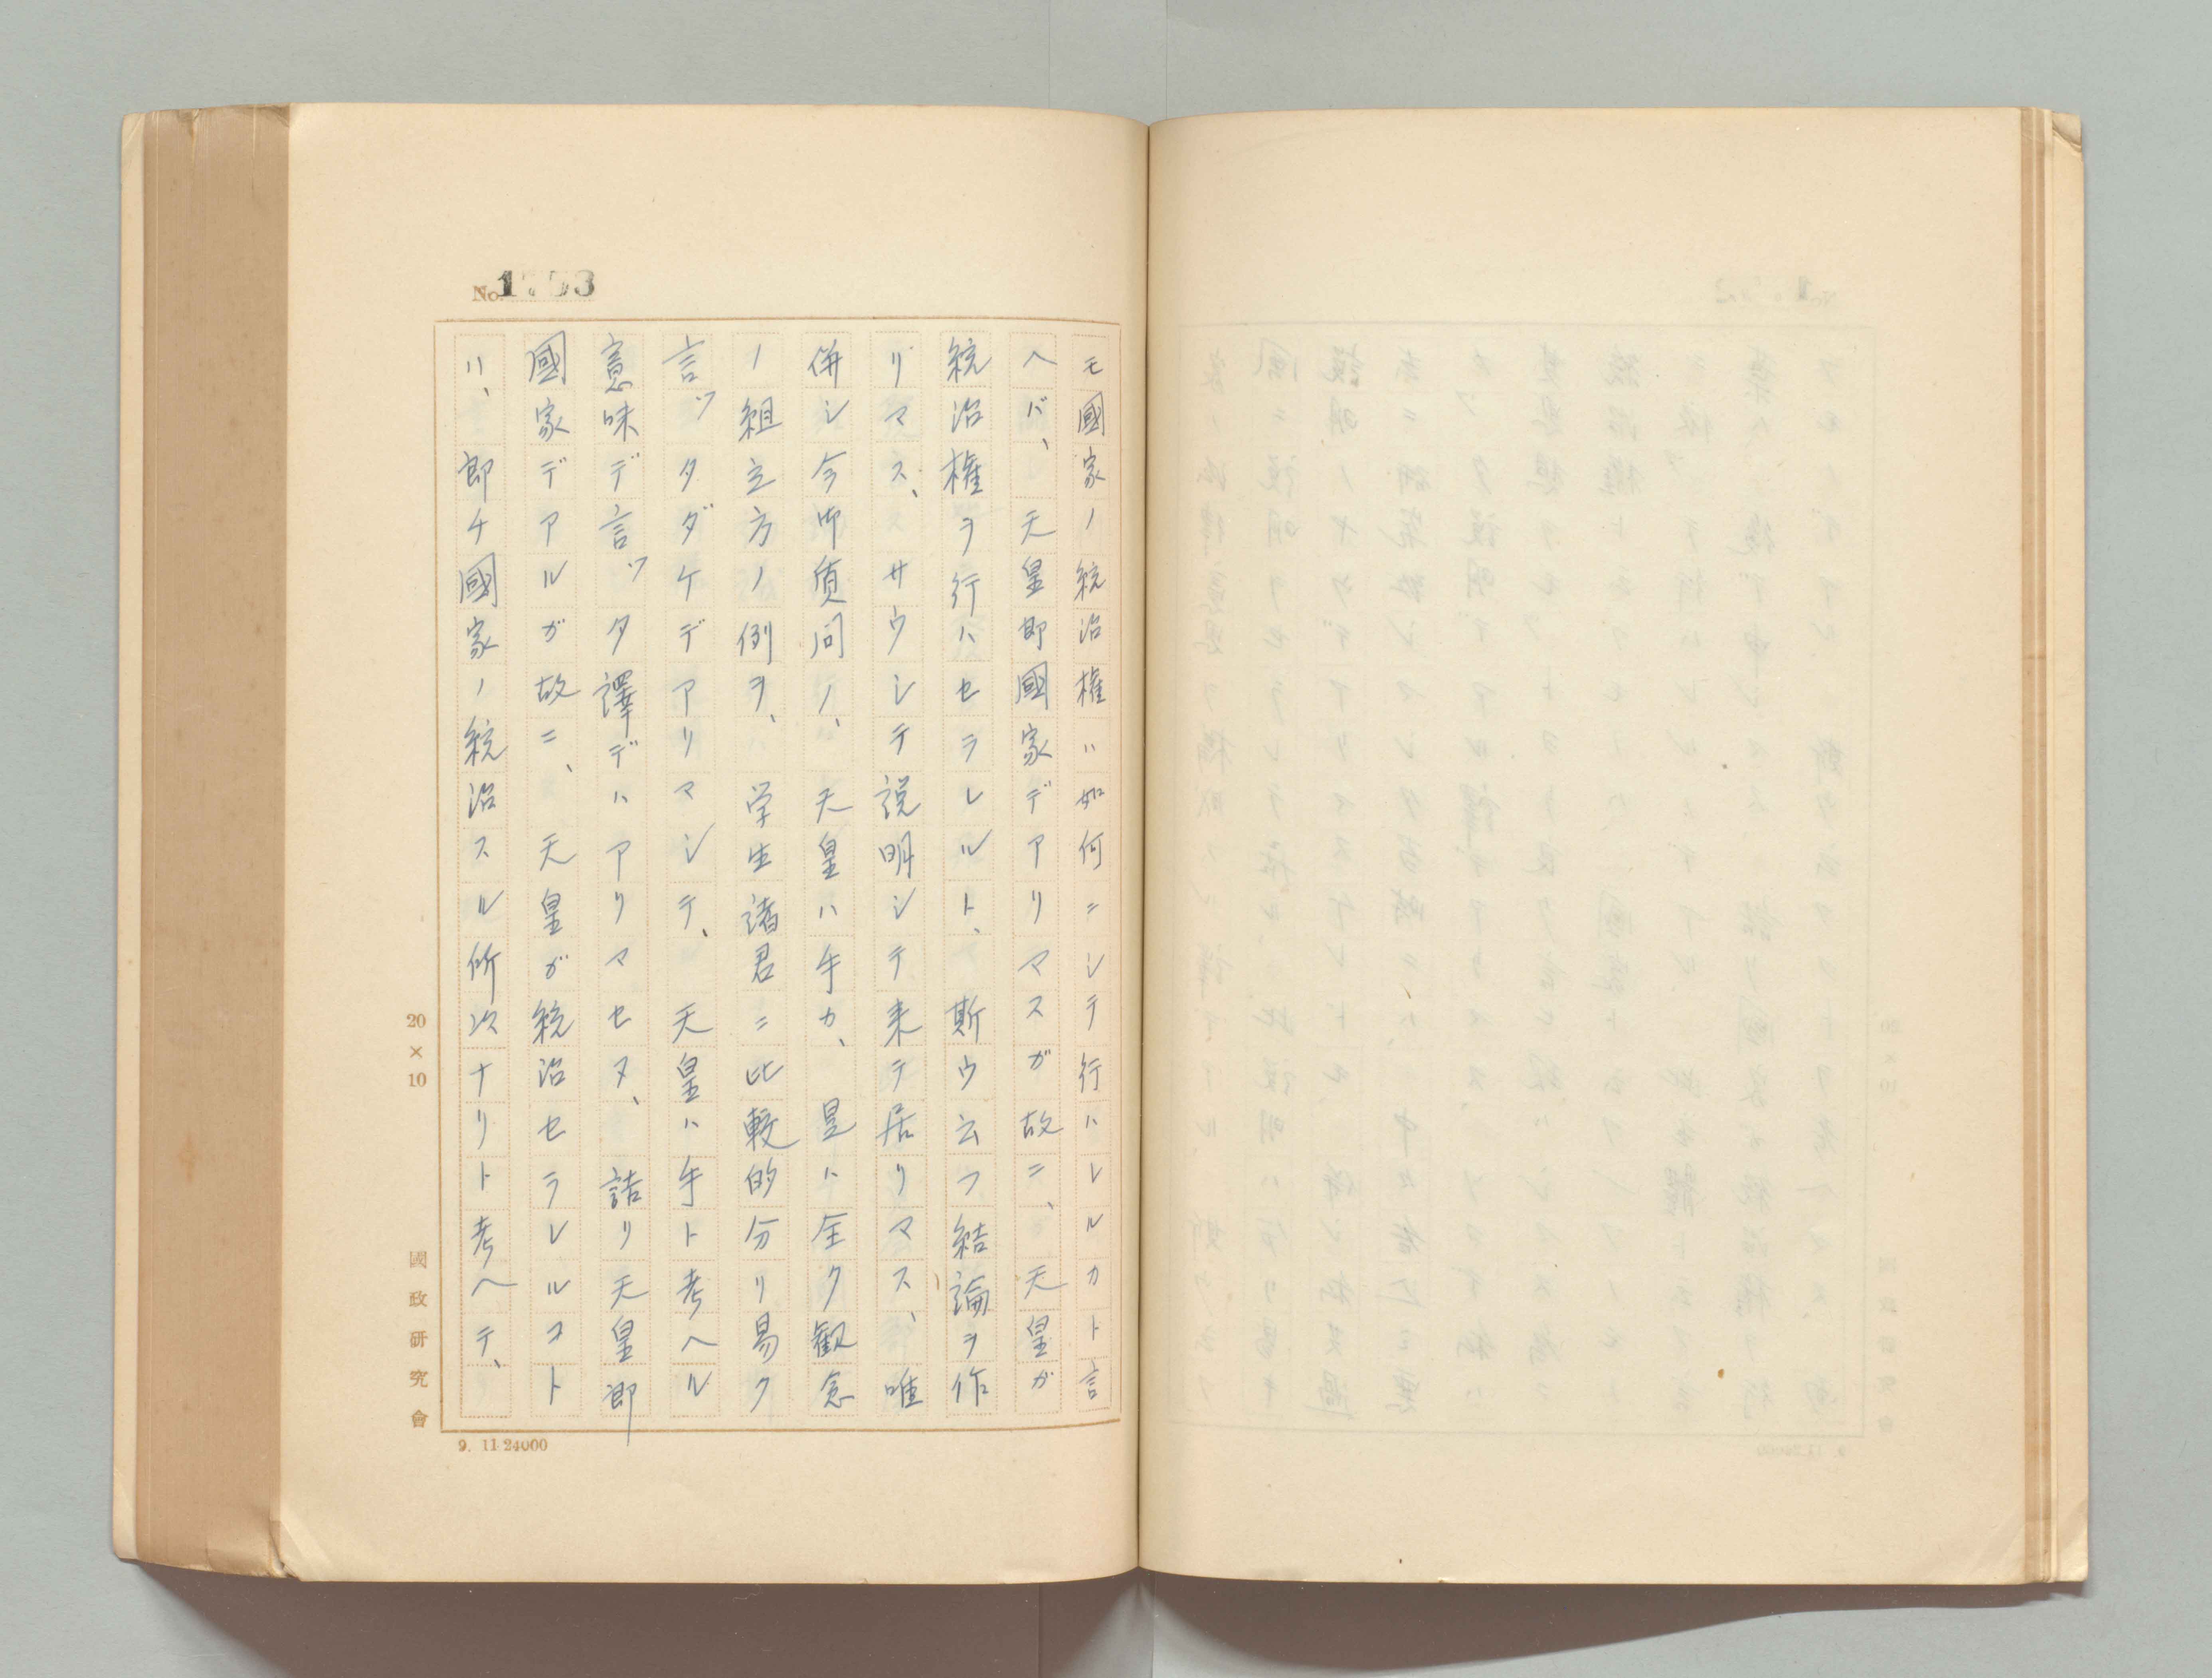 No. 1753
モ國家ノ統治権ハ如何ニシテ行ハレルカト言
ヘバ、天皇即國家デアリマスガ故ニ、天皇ガ
統治権ヲ行ハセラレルト、斯ウ云フ結論ヲ作
リマス、サウシテ説明シテ来テ居リマス、唯
併シ今御質問ノ、天皇ハ手カ、是ハ全ク観念
ノ組立方ノ例ヲ、学生諸君ニ比較的分リ易ク
言ツタダケデアリマシテ、天皇ハ手ト考ヘル
意味デ言ツタ譯デハアリマセヌ、詰リ天皇即
國家デアルガ故ニ、天皇ガ統治セラレルコト
ハ、即チ國家ノ統治スル所以ナリト考ヘテ、
20×10 國政研究會
9. 11 24000